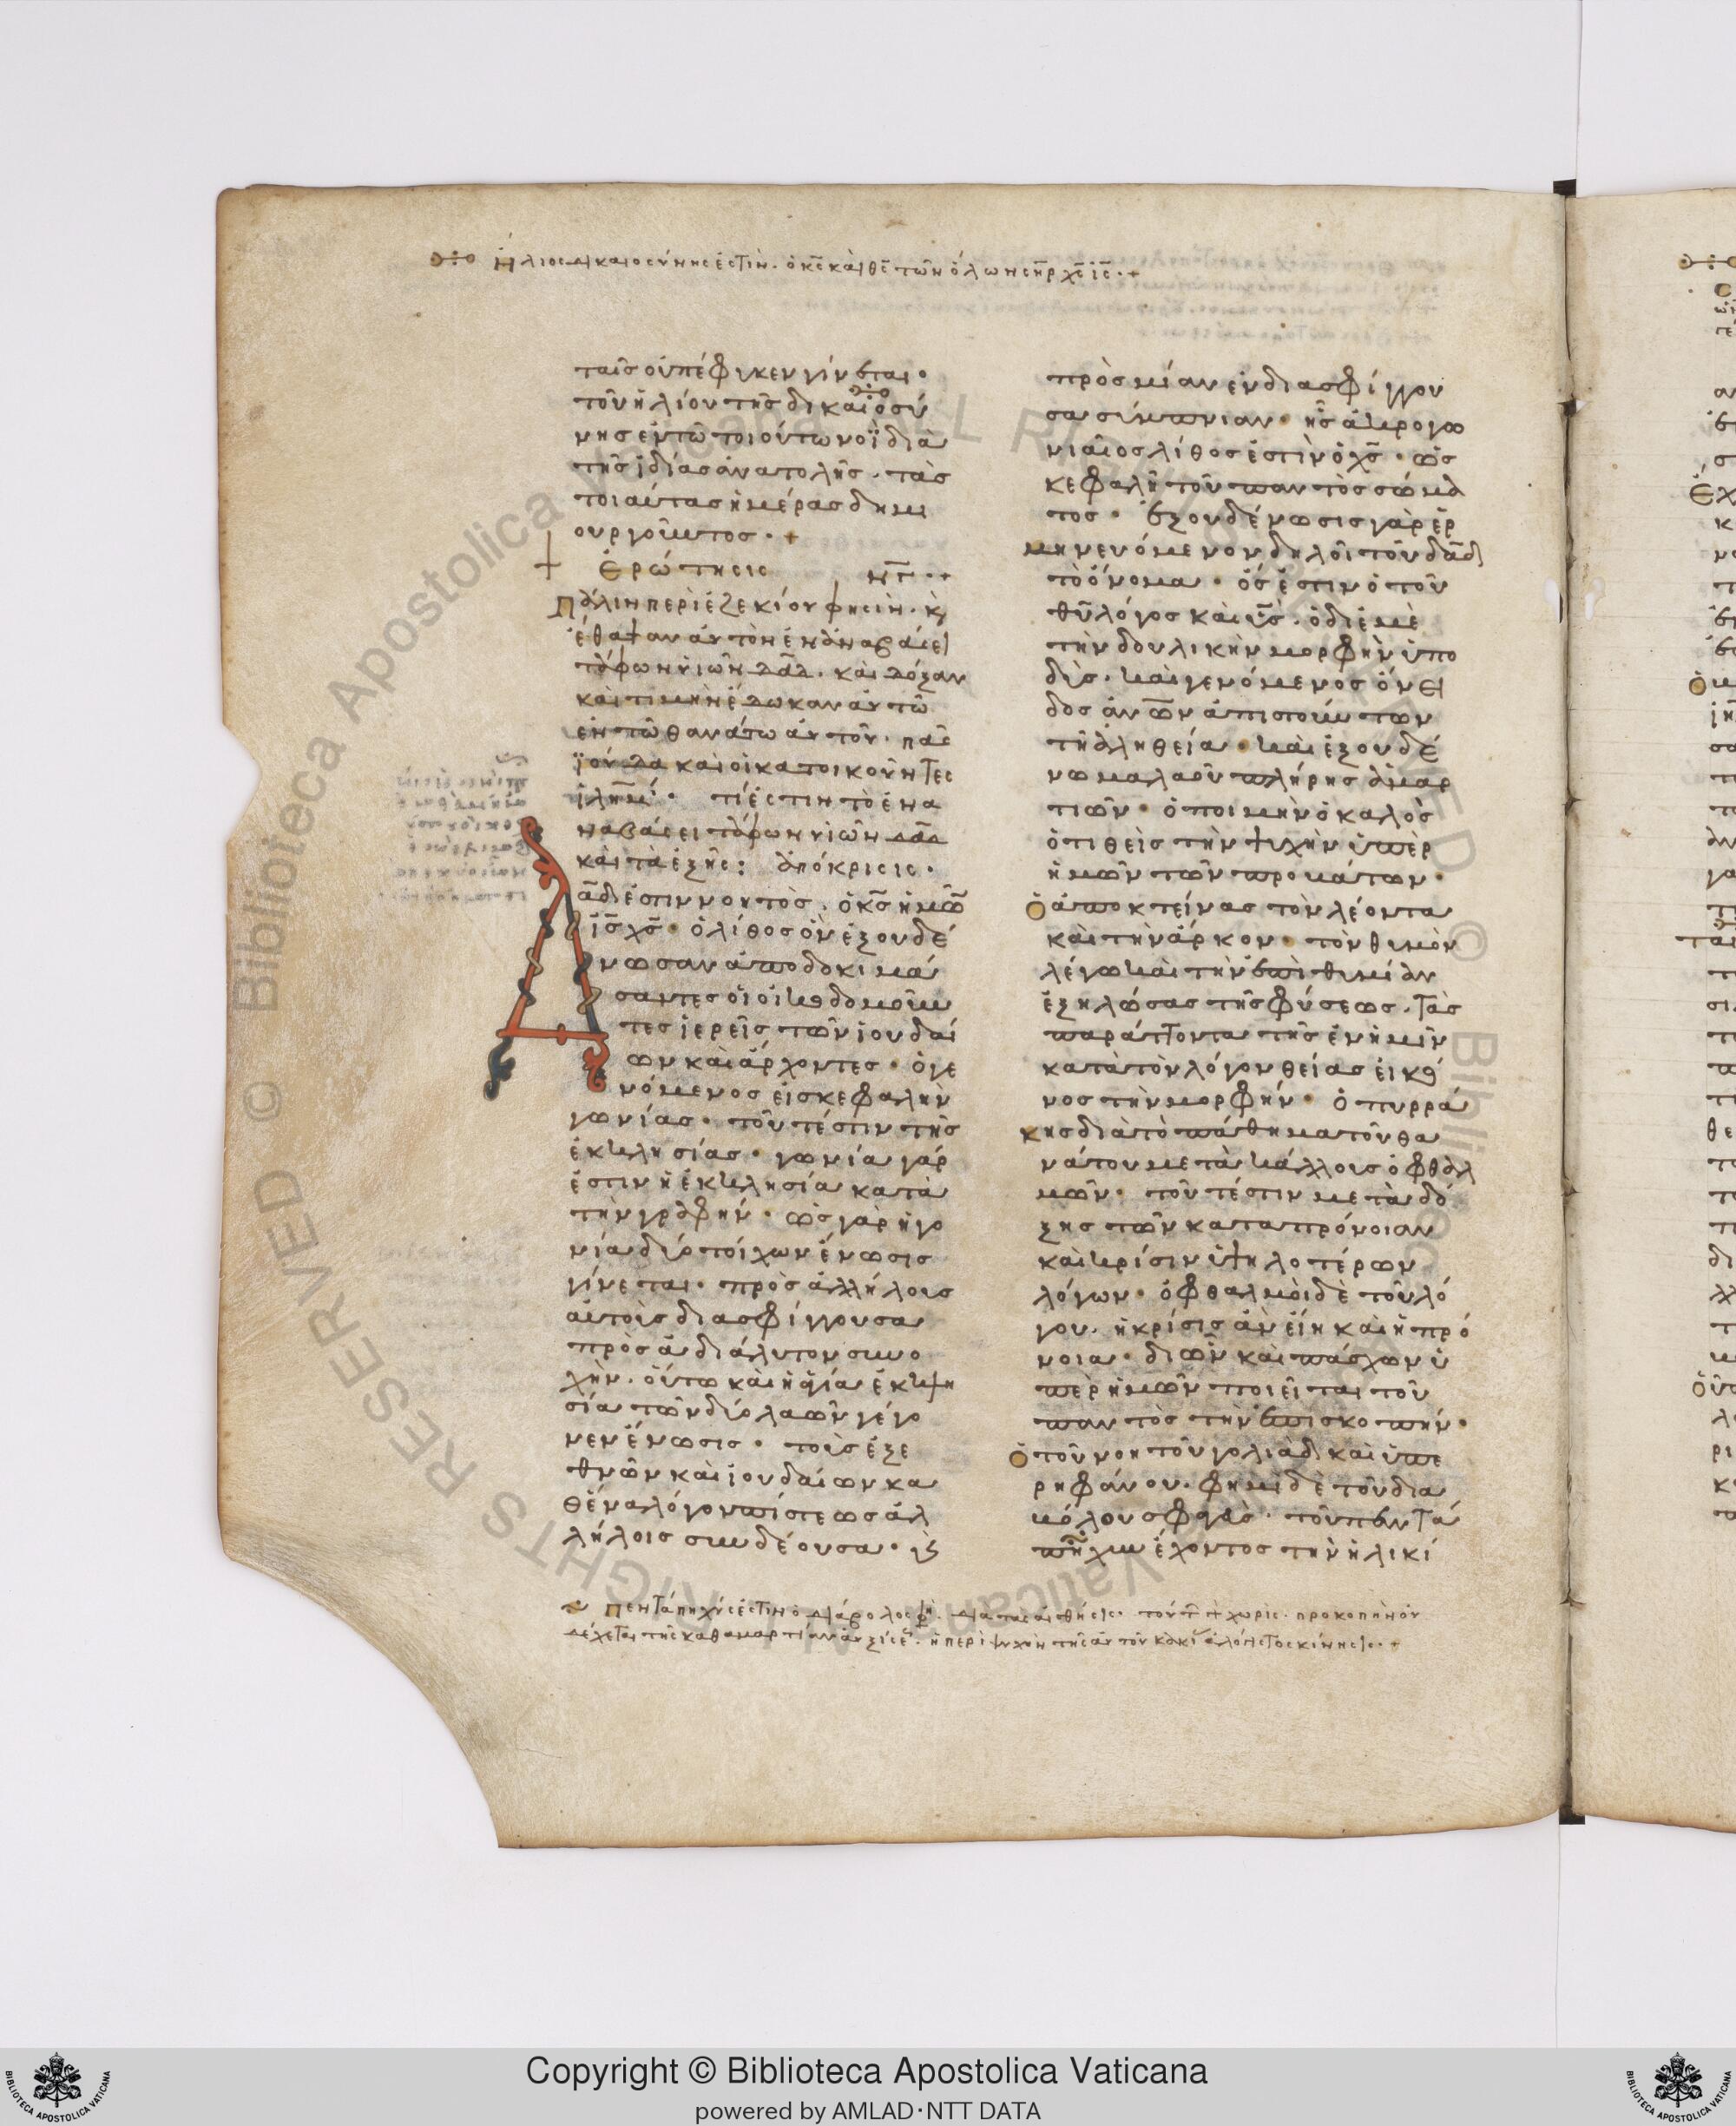 Ἥλιος δικαιοσύνης ἐστὶν. ὁ κ̅ς̅ καὶ θ̅ς̅ τῶν ὅλων σ̅η̅ρ̅ χ̅ς̅ ι̅ς̅. +
ταῖς οὐ πέφυκεν γίνεσθαι·
τοῦ ἡλίου τῆς δικαιοσύ
νης ἐν τῶ τοιούτω νοῒ διὰ
τῆς ἰδίας ἀνατολῆς. τὰς
τοιαύτας ἡμέρας δημι
ουργοῦντος. +
Ἐρώτησις ν̅γ̅. +
Πάλιν περὶ ἐζεκίου φησὶν. κ(αὶ)
ἔθαψαν αὐτὸν ἐν ἀναβάσει
τάφων υἱῶν δ̅α̅δ̅. καὶ δόξαν
καὶ τιμὴν ἔδωκαν αὐτῶ
ἐν τῶ θανάτω αὐτοῦ. πᾶς
ϊούδα καὶ οἱ κατοικοῦντες
ἰ̅λ̅η̅μ̅· τί ἐστιν τὸ ἐν ἀ
ναβάσει τάφων υἱῶν δ̅α̅δ̅
καὶ τὰ ἑξῆς: ἀπόκρισις·
Δ̅α̅δ̅ ἐστιν νοητὸς. ὁ κ̅ς̅ ἡμῶ(ν)
ι̅ς̅ χ̅ς̅· ὁ λίθος ὃν ἐξουδέ
νωσαν ἀποδοκιμά
σαντες οἱ οἰκοδομοῦν
τες ἱερεῖς τῶν ἰουδαί
ων καὶ ἄρχοντες· ὁ γε
νόμενος εἰς κεφαλὴν
γωνίας· τουτέστιν τῆς
ἐκκλησίας· γωνία γάρ
ἐστιν ἡ ἐκκλησία κατὰ
τὴν γραφήν· ὡς γὰρ ἡ γω
νία δύο τοίχων ἕνωσις
γίνεται· πρὸς ἀλλήλους
αὐτοὺς διασφίγγουσα
πρὸς ἀδιάλυτον συνο
χὴν. οὕτω καὶ ἡ ἁγία ἐκκλη
σία τῶν δύο λαῶν γέγο
νεν ἕνωσις· τοὺς ἐξ ἐ
θνῶν καὶ ἰουδαίων κα
θ' ἕνα λόγον πίστεως ἀλ
λήλοις συνδέουσα· καὶ
πρὸς μίαν ἐνδιασφίγγου
σα σύμπνοιαν· ἧς ἀκρογω
νιαῖος λίθος ἐστὶν ὁ χ̅ς̅· ὡς
κεφαλὴ τοῦ παντὸς σώμα
τος· ἐξουδένωσις γὰρ ἑρ
μηνευόμενον δηλοῖ τοῦ δ̅α̅δ̅
τὸ ὄνομα· ὅς ἐστιν ὁ τοῦ
θ̅υ̅ λόγος καὶ υ̅ς̅. ὁ δι' ἐμὲ
τὴν δουλικὴν μορφὴν ὑπο
δὺς. καὶ γενόμενος ὄνει
δος ἀν̅ω̅ν ἀπιστούντων
τῆ ἀληθεία· καὶ ἐξουδέ
νωμα λαοῦ πλήρης ἁμαρ
τιῶν· ὁ ποιμὴν ὁ καλὸς
ὁ τιθεὶς τὴν ψυχὴν ὑπὲρ
ἡμῶν τῶν προβάτων·
Ὁ ἀποκτείνας τὸν λέοντα
καὶ τὴν ἄρκον· τὸν θυμὸν
λέγω καὶ τὴν ἐπιθυμίαν
ἐξηλώσας τῆς φύσεως. τὰς
παράττοντα τῆς ἐν ἡμῖν
κατὰ τὸν λόγον θείας εἰκό
νος τὴν μορφήν· ὁ πυρρά
κης διὰ τὸ πάθημα τοῦ θα
νάτου μετὰ κάλλους ὀφθαλ
μῶν· τουτέστιν μετὰ δό
ξης τῶν κατὰ πρόνοιαν
καὶ κρίσιν ὑψηλοτέρων
λόγων· ὀφθαλμοὶ δὲ τοῦ λό
γου. ἡ κρίσις ἂν εἴη καὶ ἡ πρό
νοια· δι' ὧν καὶ πάσχων ὑ
πὲρ ἡμῶν ποιεῖται τοῦ
παντὸς τὴν ἐπισκοπήν·
Ὁ τοῦ νοητοῦ γολιὰδ καὶ ὑπε
ρηφάνου. φημὶ δὲ τοῦ δια
βόλου σφαγεὺς· τοῦ πεντά
πηχυν ἔχοντος τὴν ἡλικί
Πεντάπηχυς ἐστὶν ὁ διάβολος φη(σὶ). διὰ τὰς αἰσθήσεις· χωρὶς. προκοπὴν οὐ
δέχεται τῆς καθ' ἁμαρτίαν αὐξήσεως. ἡ περὶ ψυχὴν τῆς αὐτοῦ κακίας ἀλόγιστος κίνησις. +